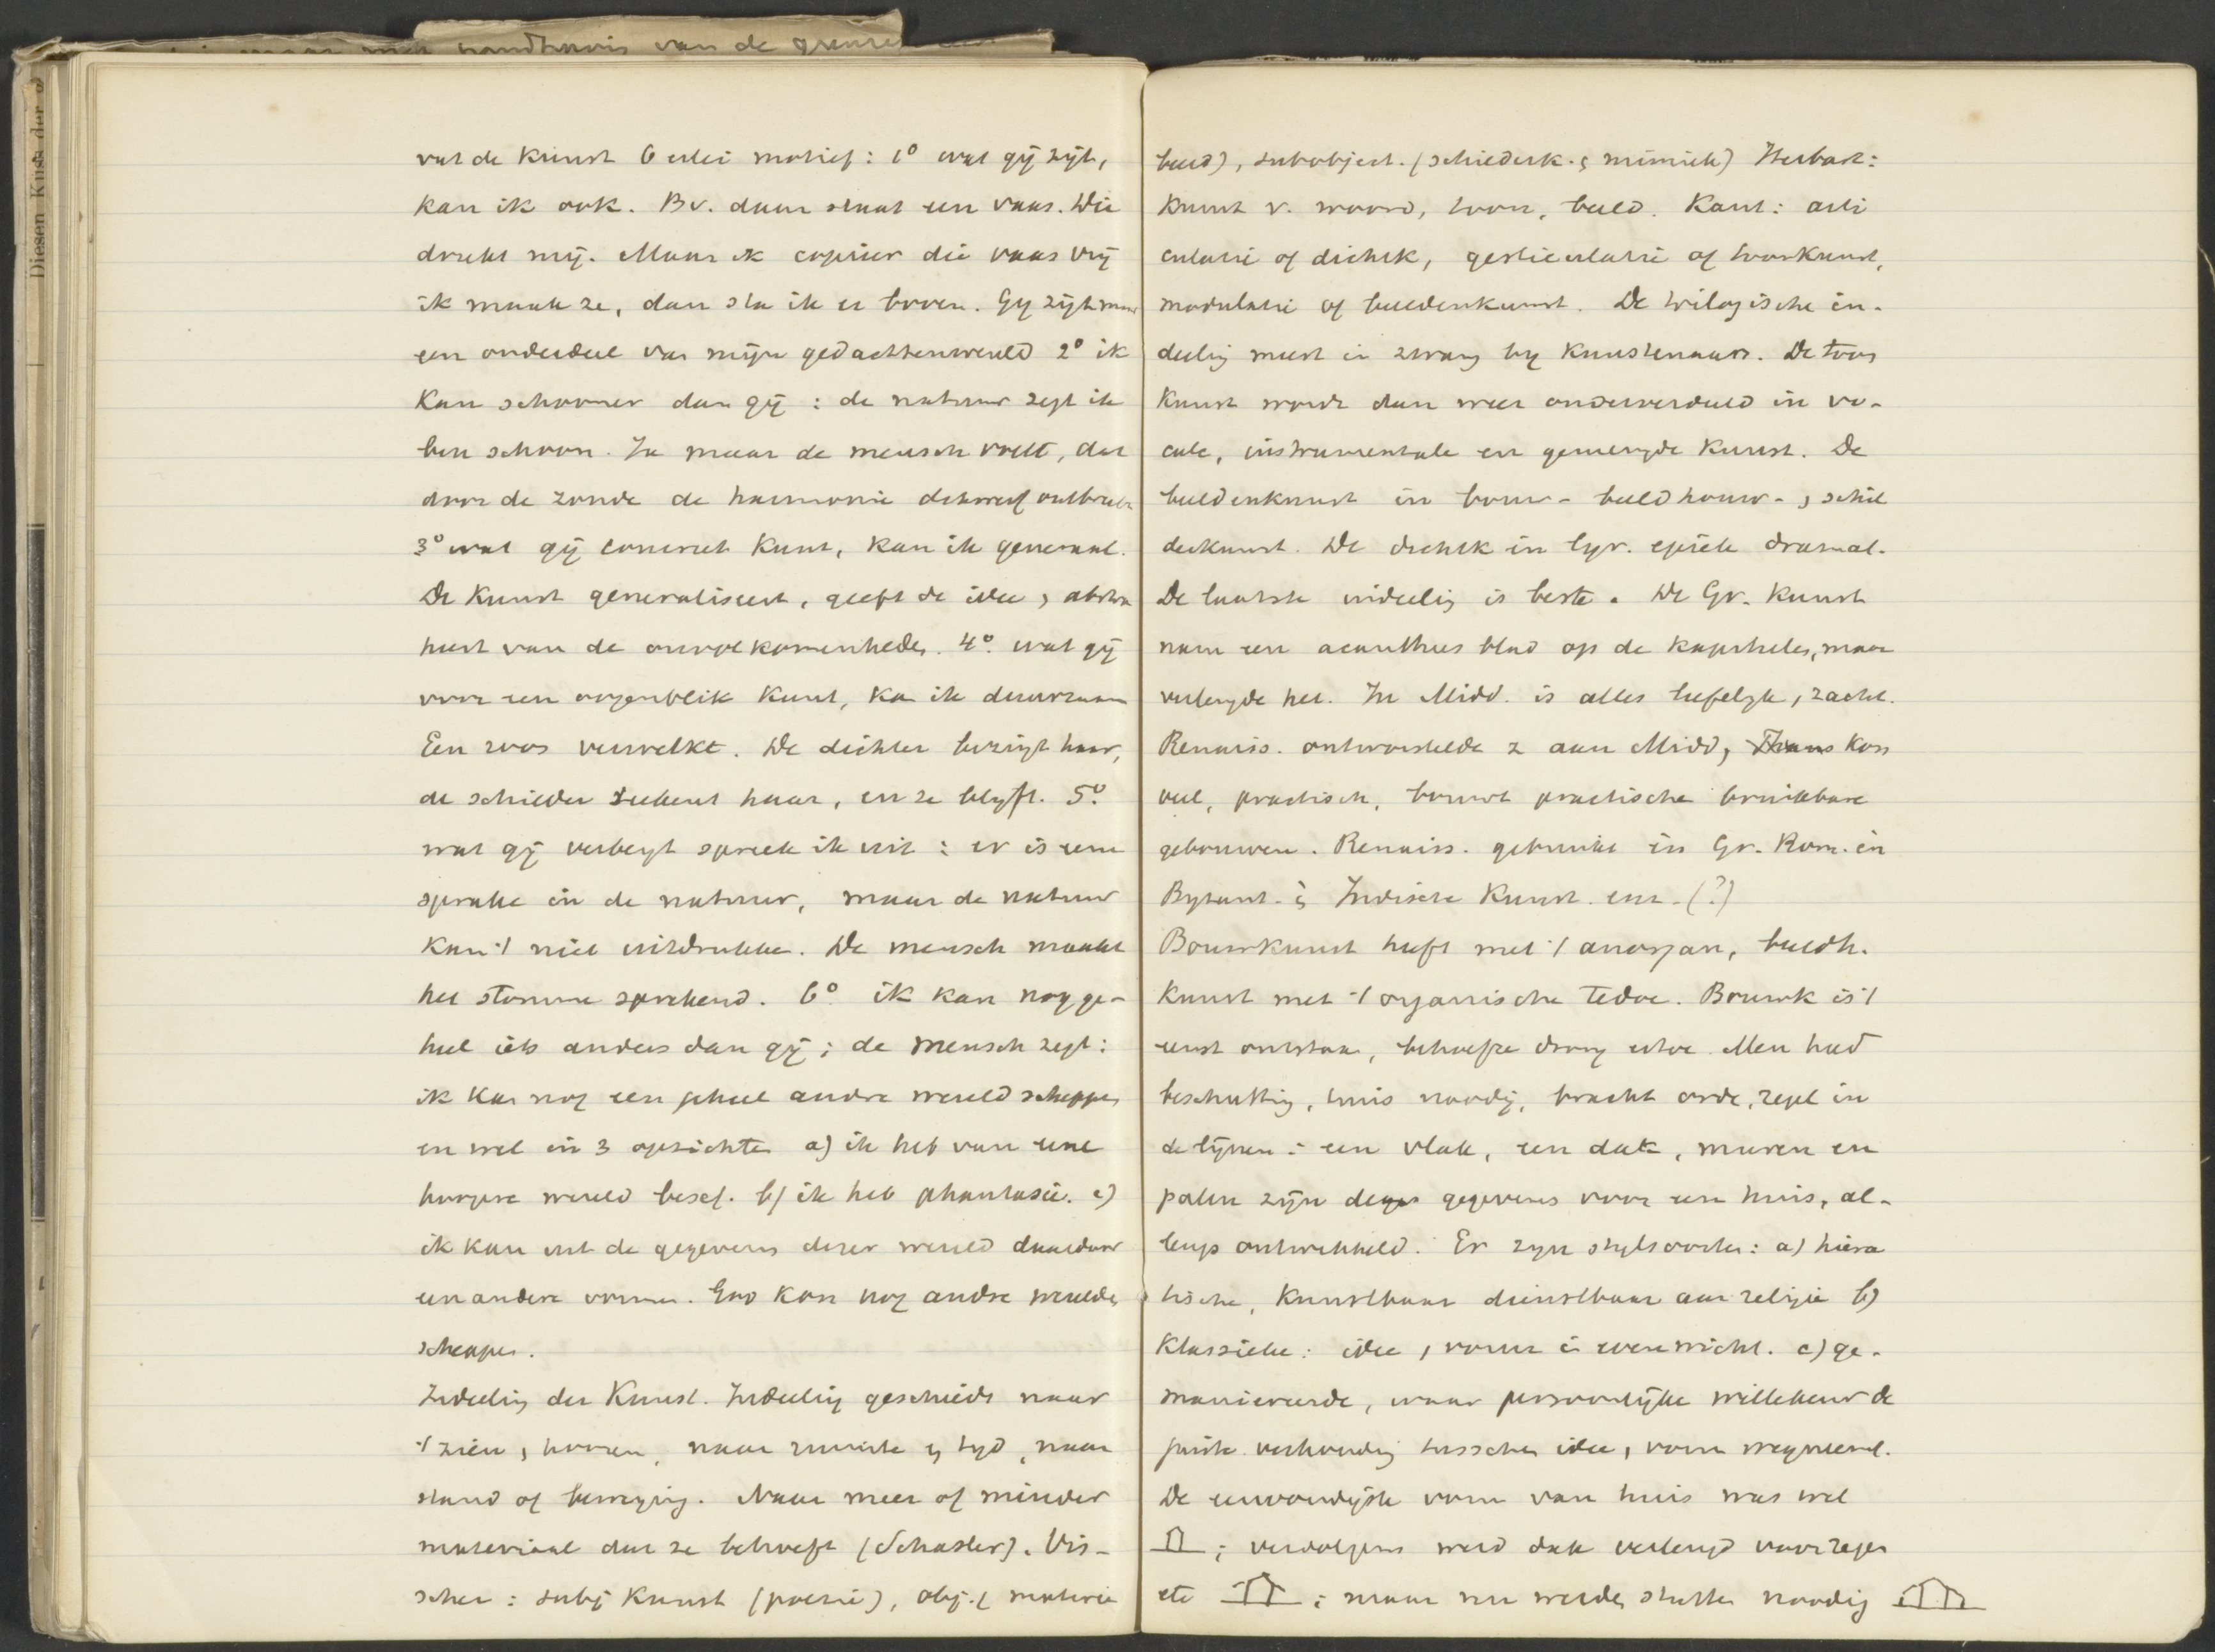 Diesen Kust der
van de grenze
vat de Kunst 6 erlei motief: 1° wat gij zijt,
kan ik ook. Bv. daar staat een vaas. Die
drukt mij. Maar ik copieer die vaas vrij
ik maak ze, dan sta ik er boven. Gij zijt maar
een onderdeel van mijn gedachtenwereld 2° ik
Kan schooner dan gij: de natuur zegt ik
ben schoon. Ja maar de mensch voelt, dat
door de zonde de harmonie ontbreekt
3° wat gij concreet kunt, kan ik generaal.
De Kunst generaliseert, geeft de idee, abstra
heert van de onvolkomenheden. 4° wat gij
voor een oogenblik kunt, ka ik duurzaam
Een roos verwelkt. De dichter bezingt haar,
de schilder teekent haar, en ze blijft. 5°
wat gij verbergt spreek ik uit: er is eene
sprake in de natuur, maar de natuur
kan 't niet uitdrukke. De mensch maakt
het stomme sprekend. 6° ik kan nog ge-
heel iets anders dan gij; de mensch zegt:
ik kan nog een geheel andre wereld scheppen
en wel in 3 opzichte a) ik heb van eene
hoogere wereld besef. b) ik heb phantasie. c)
ik kan uit de gegevens dezer wereld daardoor
een andere vormen. God kon nog andre werelden
scheppen.
Indeeling der Kunst. Indeeling geschiedt naar
't zien, hooren, naar ruimte en tijd, naar
stand of beweging. Naar meer of minder
materiaal dat ze behoeft (Schasler). Vis-
scher: subj Kunst (poezie), obj. ( materie
beeld), subobject. (schilderk. & mimiek) Herbart:
Kunst v. woord, toon, beeld. Kant: arti
culatie of dichtk, gesticulatie of toonkunst,
modulatie of beeldenkunst. De trilogische in-
deeling meest in zwang bij Kunstenaars. De toon
Kunst wordt dan weer onderverdeeld in vo-
cale, instrumentale en gemengde Kunst. De
beeldenkunst in bouw- beeldhouw-, schil
derkunst. De dichtk in lyr. epische dramat.
De laatste indeeling is beste. De Gr. Kunst
nam een acanthus blad op de kapiteelen, maar
verlengde het. In Midd. is alles liefelijk, zacht.
Renaiss. ontworstelde z aan Midd, Thans Kon
veel, practisch, bouwt practische bruikbare
gebouwen. Renaiss. gebruikt in Gr. Rom. en
Byzant. & Indische Kunst. enz. (?)
Bouwkunst heeft met 't anorgan, beeldh.
Kunst met 't organische te doe. Bouwk is 't
eerst ontstaan, behoefte drong ertoe. Men had
beschutting, huis noodig, bracht orde, regel in
de lijnen: een vlak, een dak, muren en
palen zijn de gegevens voor een huis, al-
lengs ontwikkeld. Er zijn stylsoorten: a) hiera
tische, Kunstbaar dienstbaar aan religie b)
Klassieke: idee, vorm in evenwicht. c) ge-
manieerde, waar persoonlijke willekeur de
juiste verhouding tusschen idee, vorm wegneemt.
De eenvoudigste vorm van huis was wel
; vervolgens werd dak verlengd voor regen
etc ; maar nu werden stutten noodig